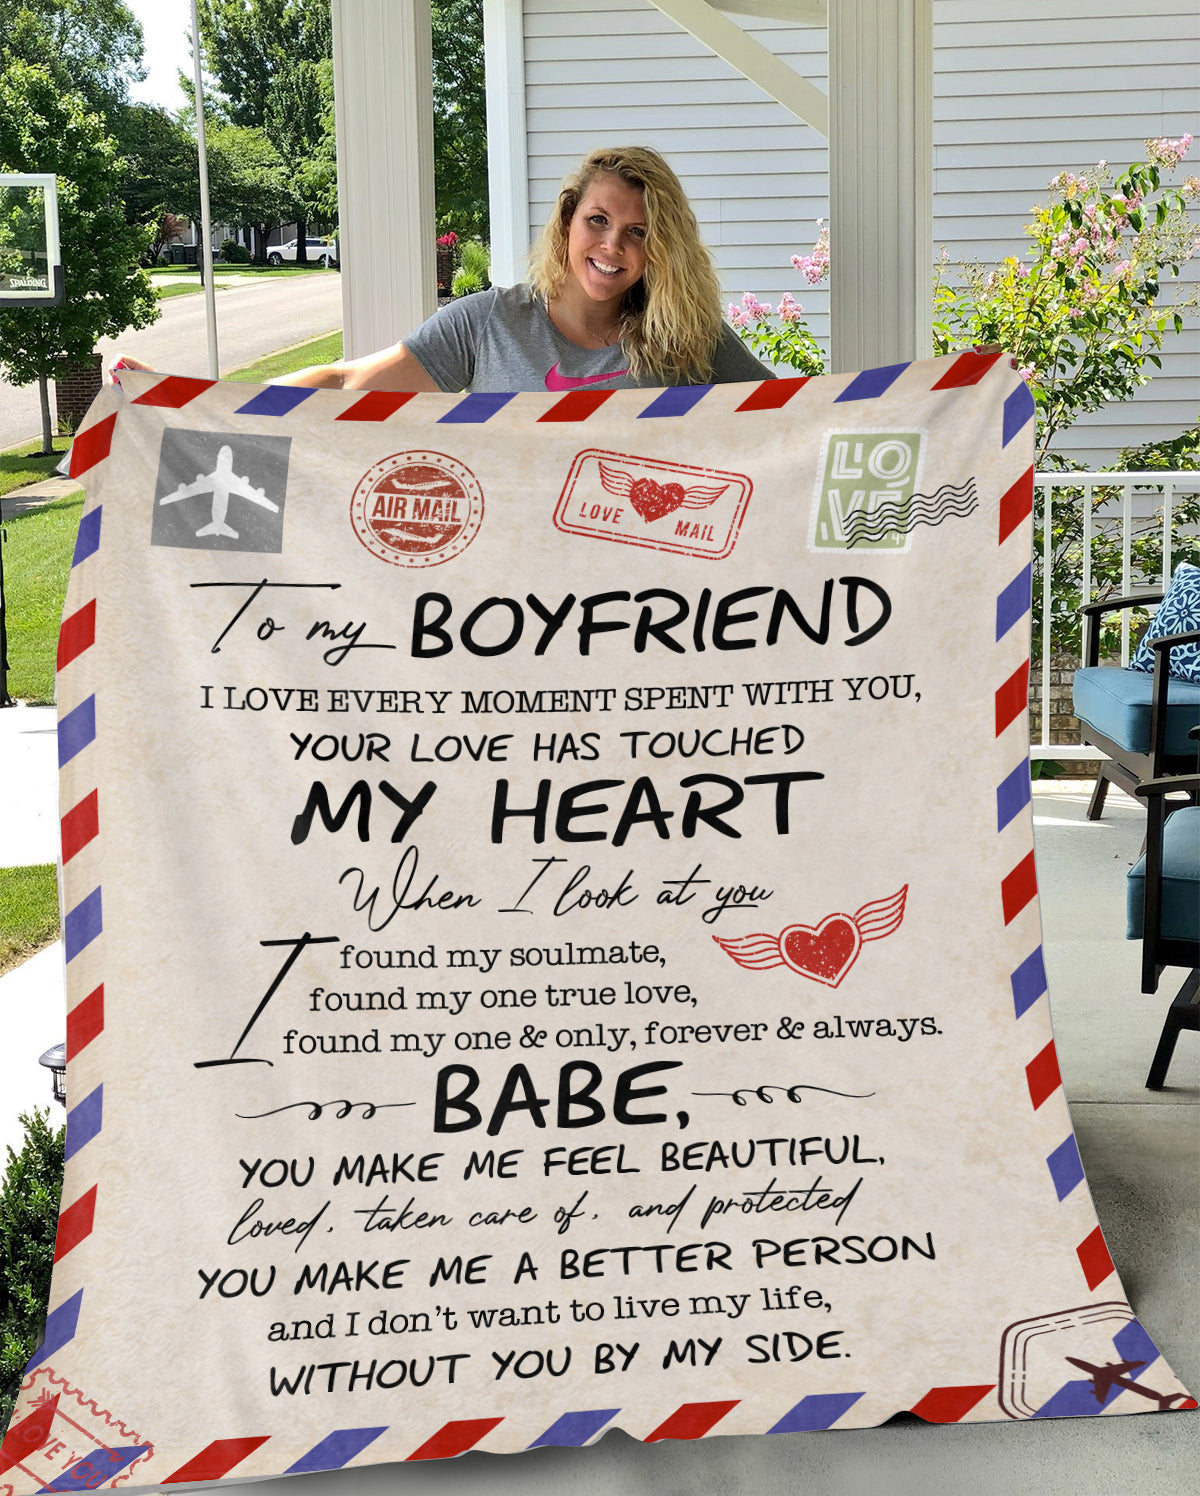 SPALDING
AIR MAIL
LOVE
MAIL
LO
VE
To my BOYFRIEND
I LOVE EVERY MOMENT SPENT WITH YOU,
YOUR LOVE HAS TOUCHED
MY HEART
When I look at you
I found my soulmate,
found my one true love,
found my one & only, forever & always.
BABE,
YOU MAKE ME FEEL BEAUTIFUL,
loved, taken care of, and protected
YOU MAKE ME A BETTER PERSON
and I don't want to live my life,
WITHOUT YOU BY MY SIDE.
LOVE YOU